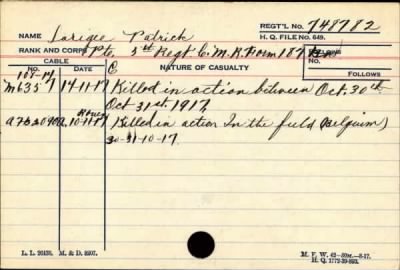 NAME Larigee Patrick REGT'L No. 748782
H. Q. FILE No. 649.
RANK AND CORPS Pte, 5th Regt. C. M. R. Form 187
CABLE
NO. DATE NATURE OF CASUALTY FOLLOWS
108-14 C
M635 7 14-11-17 Killed in action between Oct. 30th
Oct. 31st 1917.
Rouen
A.7320 10-11-17 Killed in action In the field (Belguim)
30-31-10-17.
L. L. 20438. M. & D. 8907.
M. F. W. 42—50M.—8-17.
H. Q. 1772-39-893.